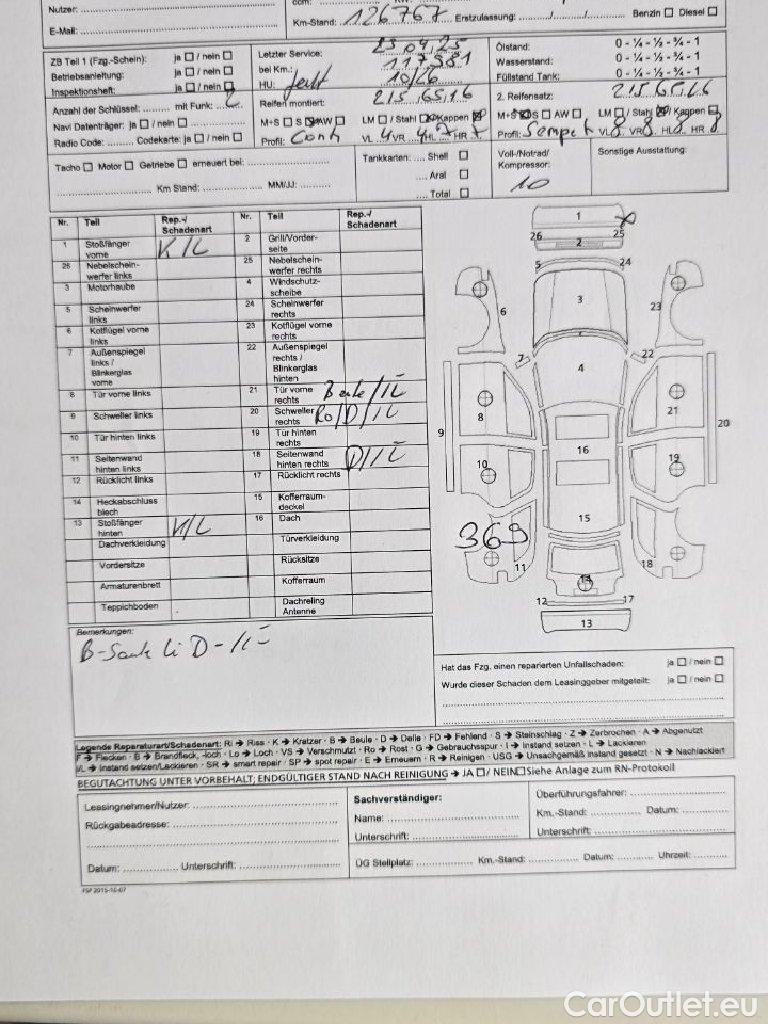 Nutzer:
Km-Stand: 126767 Erstzulassung: / /
Benzin ☐ Diesel ☐
E-Mail:
ZB Teil 1 (Fzg.-Schein): ja ☐ / nein ☐
Betriebsanleitung: ja ☐ / nein ☐
Inspektionsheft: ja ☐ / nein ☐
Anzahl der Schlüssel: mit Funk: 2
Navi Datenträger: ja ☐ / nein ☐
Radio Code: Codekarte: ja ☐ / nein ☐
Letzter Service: 23.04.25
bei Km.: 117381
HU: 10/26
Reifen montiert: 215.65.16
M+S ☐ S ☒ AW ☐ LM ☐ / Stahl ☒ Kappen ☒
Profil: Conti VL 4 VR 4 HL 7 HR 7
Ölstand: 0 - ¼ - ½ - ¾ - 1
Wasserstand: 0 - ¼ - ½ - ¾ - 1
Füllstand Tank: 0 - ¼ - ½ - ¾ - 1
2. Reifensatz: 215.65.16
M+S ☒ S ☐ AW ☐ LM ☐ / Stahl ☒ / Kappen ☐
Profil: Semperit VL 8 VR 8 HL 8 HR 8
Tacho ☐ Motor ☐ Getriebe ☐ erneuert bei:
Km Stand: MM/JJ:
Tankkarten: Shell ☐
Aral ☐
Total ☐
Voll-/Notrad/
Kompressor:
10
Sonstige Ausstattung:
Nr. Teil Rep.-/
Schadenart
Nr. Teil Rep.-/
Schadenart
1 Stoßfänger
vorne K/L
2 Grill/Vorder-
seite
26 Nebelschein-
werfer links
25 Nebelschein-
werfer rechts
3 Motorhaube
4 Windschutz-
scheibe
5 Scheinwerfer
links
24 Scheinwerfer
rechts
6 Kotflügel vorne
links
23 Kotflügel vorne
rechts
7 Außenspiegel
links /
Blinkerglas
vorne
22 Außenspiegel
rechts /
Blinkerglas
hinten
8 Tür vorne links
21 Tür vorne
rechts Beule/IL
9 Schweller links
20 Schweller
rechts Ro/D/IL
10 Tür hinten links
19 Tür hinten
rechts
11 Seitenwand
hinten links
18 Seitenwand
hinten rechts D/IL
12 Rücklicht links
17 Rücklicht rechts
14 Heckabschluss
blech
15 Kofferraum-
deckel
13 Stoßfänger
hinten K/L
16 Dach
Dachverkleidung
Türverkleidung
Vordersitze
Rücksitze
Armaturenbrett
Kofferraum
Teppichboden
Dachreling
Antenne
1
26 2 25
5 24
6 3 23
7 22
4
8 21
9 20
16
10 19
15
369
11 18
14
12 17
13
Bemerkungen:
Hat das Fzg. einen reparierten Unfallschaden: ja ☐ / nein ☐
Wurde dieser Schaden dem Leasinggeber mitgeteilt: ja ☐ / nein ☐
Legende Reparaturart/Schadenart: Ri → Riss · K → Kratzer · B → Beule · D → Delle · FD → Fehlend · S → Steinschlag · Z → Zerbrochen · A → Abgenutzt
F → Flecken · B → Brandfleck, -loch · Lo → Loch · VS → Verschmutzt · Ro → Rost · G → Gebrauchsspur · I → Instand setzen · L → Lackieren
I/L → Instand setzen/Lackieren · SR → smart repair · SP → spot repair · E → Erneuern · R → Reinigen · USG → Unsachgemäß instand gesetzt · N → Nachlackiert
BEGUTACHTUNG UNTER VORBEHALT; ENDGÜLTIGER STAND NACH REINIGUNG → JA ☐ / NEIN ☐ Siehe Anlage zum RN-Protokoll
Leasingnehmer/Nutzer:
Rückgabeadresse:
Datum: Unterschrift:
Sachverständiger:
Name:
Unterschrift:
Überführungsfahrer:
Km.-Stand: Datum:
Unterschrift:
ÖG Stellplatz: Km.-Stand: Datum: Uhrzeit:
FSP 2015-10-07
CarOutlet.eu